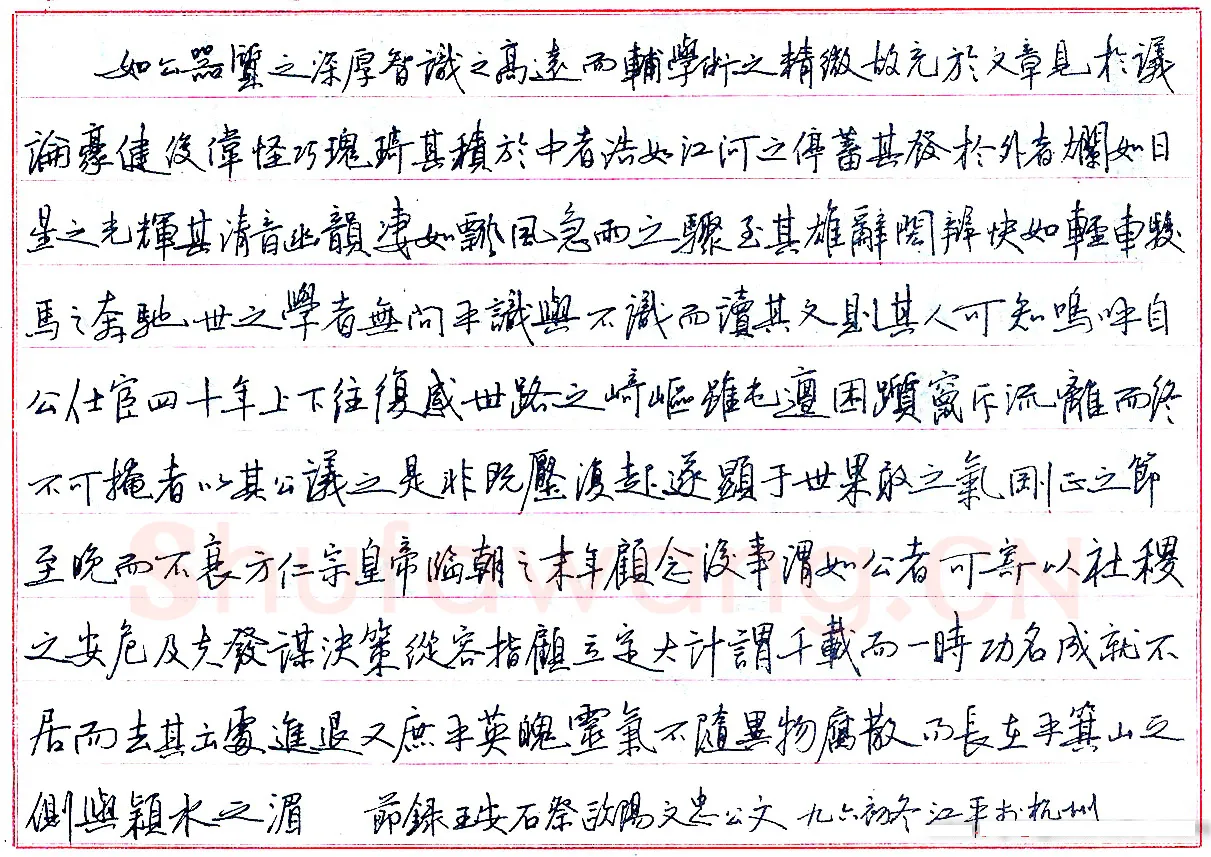 如公器質之深厚智識之高遠而輔學術之精微故充於文章見於議
論豪健俊偉怪巧瑰琦其積於中者浩如江河之停蓄其發於外者爛如日
星之光輝其清音幽韻淒如飄風急雨之驟至其雄辭閎辯快如輕車駿
馬之奔馳世之學者無問乎識與不識而讀其文則其人可知嗚呼自
公仕宦四十年上下往復感世路之崎嶇雖屯邅困躓竄斥流離而終
不可掩者以其公議之是非既壓復起遂顯于世果敢之氣剛正之節
至晚而不衰方仁宗皇帝臨朝之末年顧念後事謂如公者可寄以社稷
之安危及夫發謀決策從容指顧立定大計謂千載而一時功名成就不
居而去其出處進退又庶乎英魄靈氣不隨異物腐散而長在乎箕山之
側與潁水之湄 節錄王安石祭歐陽文忠公文 九六初冬江平於杭州
Shufawang.CN